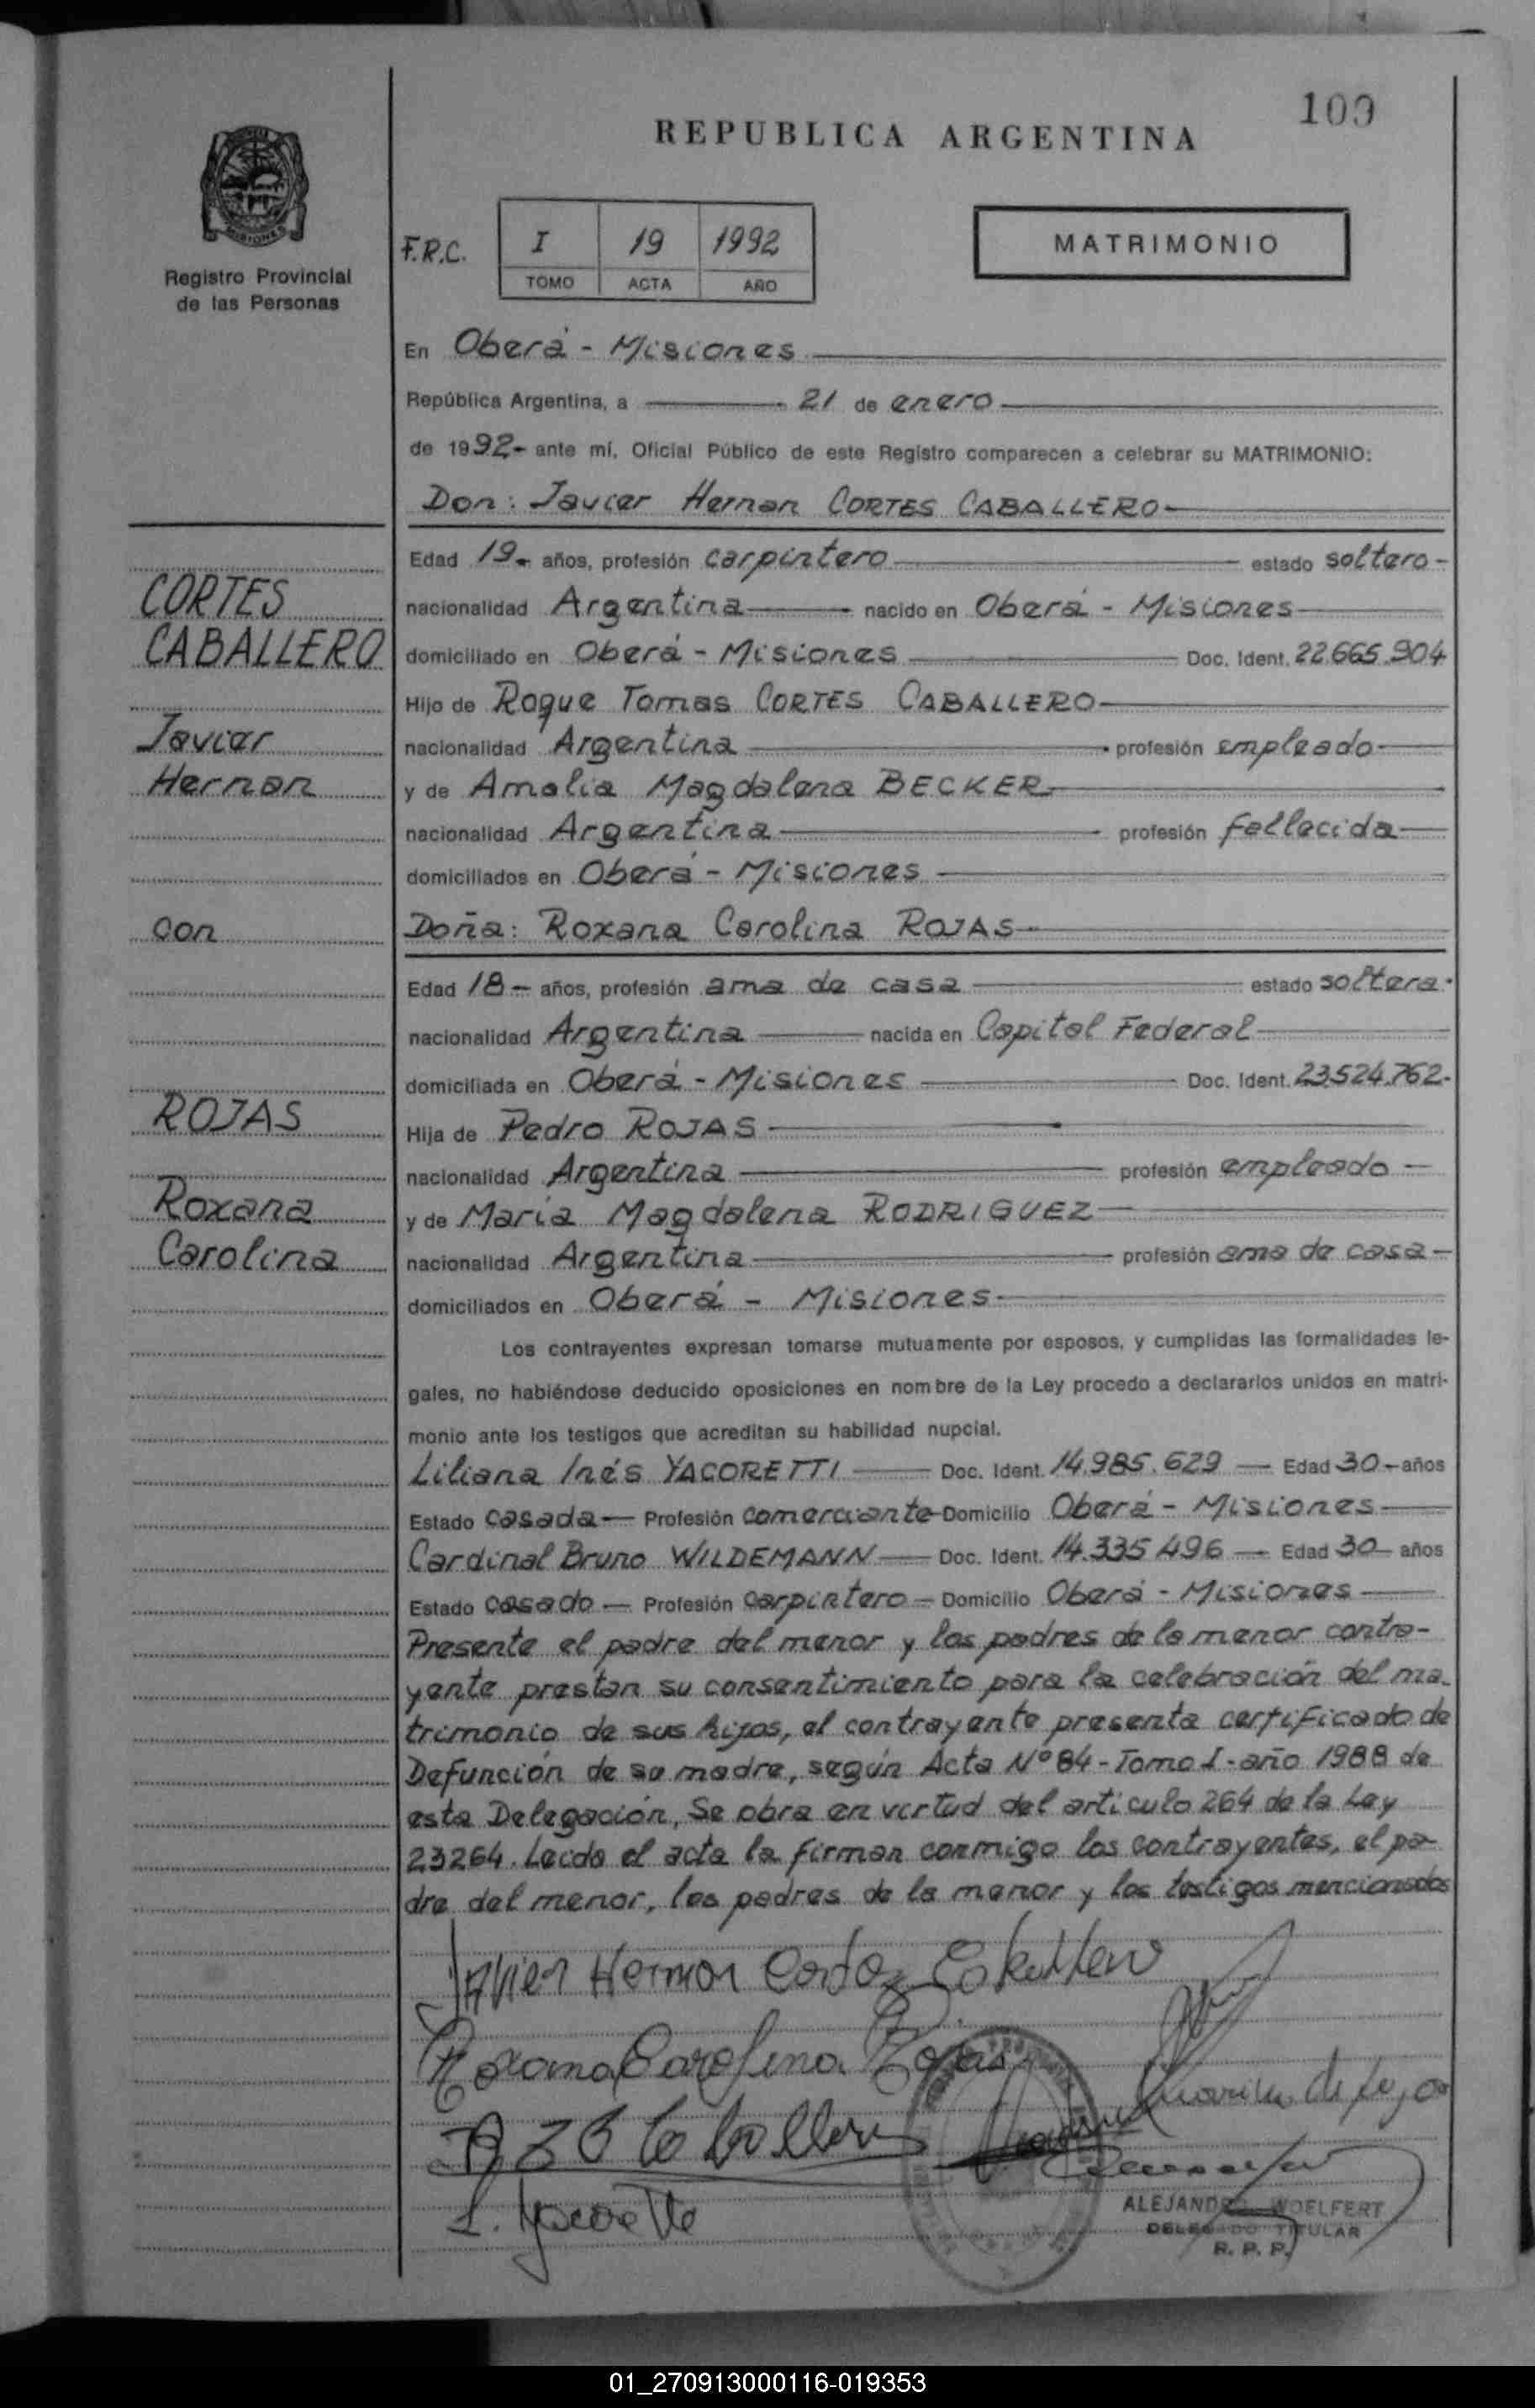 109
REPUBLICA ARGENTINA
MISIONES
Registro Provincial
de las Personas
F.R.C.
I 19 1992
TOMO ACTA AÑO
MATRIMONIO
En Oberá - Misiones
República Argentina, a 21 de enero
de 1992 - ante mí, Oficial Público de este Registro comparecen a celebrar su MATRIMONIO:
Don: Javier Hernan CORTES CABALLERO
Edad 19 - años, profesión carpintero estado soltero -
CORTES
nacionalidad Argentina nacido en Oberá - Misiones
CABALLERO
domiciliado en Oberá - Misiones Doc. Ident. 22.665.904
Hijo de Roque Tomas CORTES CABALLERO
Javier
nacionalidad Argentina profesión empleado
Hernan
y de Amalia Magdalena BECKER
nacionalidad Argentina profesión fallecida
domiciliados en Oberá - Misiones
con
Doña: Roxana Carolina ROJAS
Edad 18 - años, profesión ama de casa estado soltera -
nacionalidad Argentina nacida en Capital Federal
domiciliada en Oberá - Misiones Doc. Ident. 23.524.762 -
ROJAS
Hija de Pedro ROJAS
nacionalidad Argentina profesión empleado
Roxana
y de María Magdalena RODRIGUEZ
Carolina
nacionalidad Argentina profesión ama de casa
domiciliados en Oberá - Misiones
Los contrayentes expresan tomarse mutuamente por esposos, y cumplidas las formalidades le-
gales, no habiéndose deducido oposiciones en nombre de la Ley procedo a declararlos unidos en matri-
monio ante los testigos que acreditan su habilidad nupcial.
Liliana Inés YACORETTI Doc. Ident. 14.985.629 Edad 30 - años
Estado casada Profesión comerciante Domicilio Oberá - Misiones
Cardinal Bruno WILDEMANN Doc. Ident. 14.335.496 Edad 30 años
Estado casado Profesión carpintero Domicilio Oberá - Misiones
Presente el padre del menor y los padres de la menor contra-
yente prestan su consentimiento para la celebración del ma-
trimonio de sus hijos, el contrayente presenta certificado de
Defunción de su madre, según Acta Nº 84 - Tomo I - año 1988 de
esta Delegación, Se obra en virtud del articulo 264 de la Ley
23264. Leida el acta la firman conmigo los contrayentes, el pa-
dre del menor, los padres de la menor y los testigos mencionados
Javier Hernan Cortes Caballero
Roxana Carolina Rojas
Caballero
L. Yacoretti
ALEJANDRO WOELFERT
DELEGADO TITULAR
R. P. P.
01_270913000116-019353